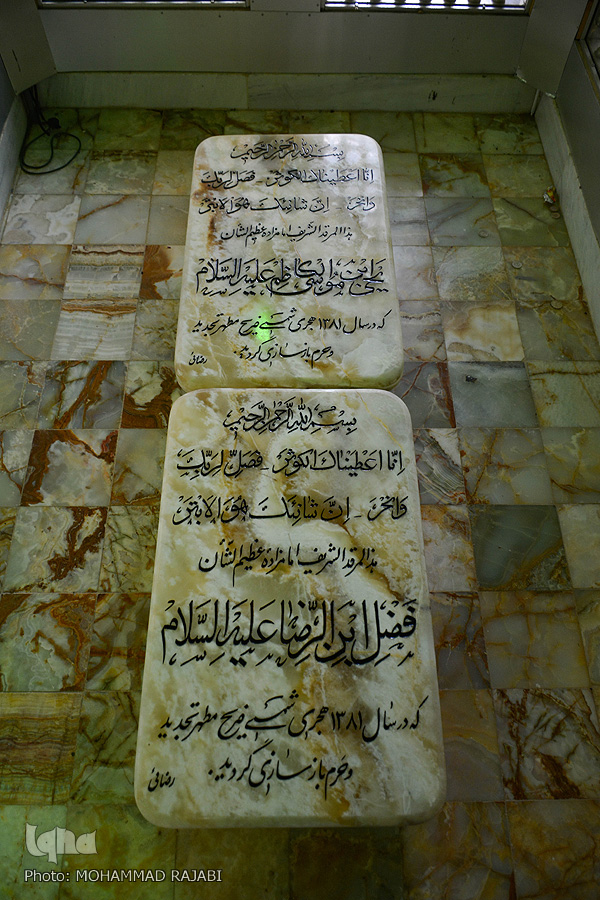 بسم الله الرحمن الرحیم
انا اعطیناک الکوثر - فصل لربک
وانحر - ان شانئک هو الابتر
هذا المرقد الشریف امامزاده عظیم الشان
ابن موسی کاظم علیه السلام
که در سال ۱۳۸۱ هجری شمسی ضریح مطهر تجدید
و حرم بازسازی گردید.
رضائی
بِسْمِ اللهِ الرَّحْمنِ الرَّحیمِ
اِنّا اعطیناک الکوثر - فصلّ لربّک
وانحر - اِنَّ شانئک هُوَ الابتر
هذا المرقد الشریف امامزاده عظیم الشأن
فضل ابن الرضا علیه السلام
که در سال ۱۳۸۱ هجری شمسی ضریح مطهر تجدید
و حرم بازسازی گردید.
رضائی
Iqna
Photo: MOHAMMAD RAJABI